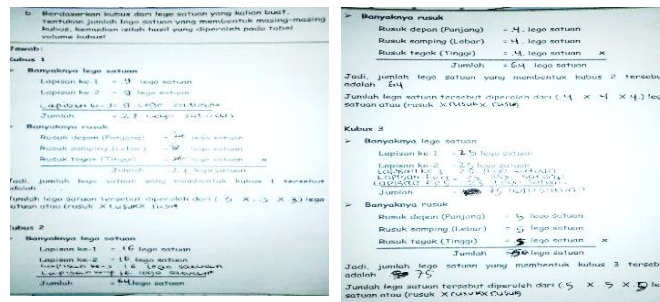 b. Berdasarkan kubus dari lego satuan yang kalian buat,
tentukan jumlah lego satuan yang membentuk masing-masing
kubus, kemudian isilah hasil yang diperoleh pada tabel
volume kubus!
Jawab:
Kubus 1
Banyaknya lego satuan
Lapisan ke-1 = 9 lego satuan
Lapisan ke-2 = 9 lego satuan
Lapisan ke-3 = 9 lego satuan
Jumlah = 27 lego satuan
Banyaknya rusuk
Rusuk depan (Panjang) = lego satuan
Rusuk samping (Lebar) = lego satuan
Rusuk tegak (Tinggi) = lego satuan x
Jumlah = lego satuan
Jadi, jumlah lego satuan yang membentuk kubus 1 tersebut
adalah
Jumlah lego satuan tersebut diperoleh dari ( 3 x 3 x 3 ) lego
satuan atau (rusuk x rusuk x rusuk
Kubus 2
Banyaknya lego satuan
Lapisan ke-1 = 16 lego satuan
Lapisan ke-2 = 16 lego satuan
Lapisan ke-3 16 lego satuan
Lapisan 16 lego satuan
Jumlah = 64 lego satuan
➤ Banyaknya rusuk
Rusuk depan (Panjang) = 4 . lego satuan
Rusuk samping (Lebar) = 4 . lego satuan
Rusuk tegak (Tinggi) = 4 . lego satuan x
Jumlah = 64 lego satuan
Jadi, jumlah lego satuan yang membentuk kubus 2 terseb
adalah 64
Jumlah lego satuan tersebut diperoleh dari ( 4 x 4 x 4 .) leg
satuan atau (rusuk x rusuk x rusuk)
Kubus 3
➤ Banyaknya lego satuan
Lapisan ke-1 = 25 lego satuan
Lapisan ke-2 = 25 lego satuan
Jumlah = 75 lego satuan
➤ Banyaknya rusuk
Rusuk depan (Panjang) = 5 lego satuan
Rusuk samping (Lebar) = 5 lego satuan
Rusuk tegak (Tinggi) = 5 lego satuan x
Jumlah lego satuan
Jadi, jumlah lego satuan yang membentuk kubus 3 terseb
adalah 75
Jumlah lego satuan tersebut diperoleh dari ( 5 x 5 x 5 le
satuan atau (rusuk x rusuk x rusuk